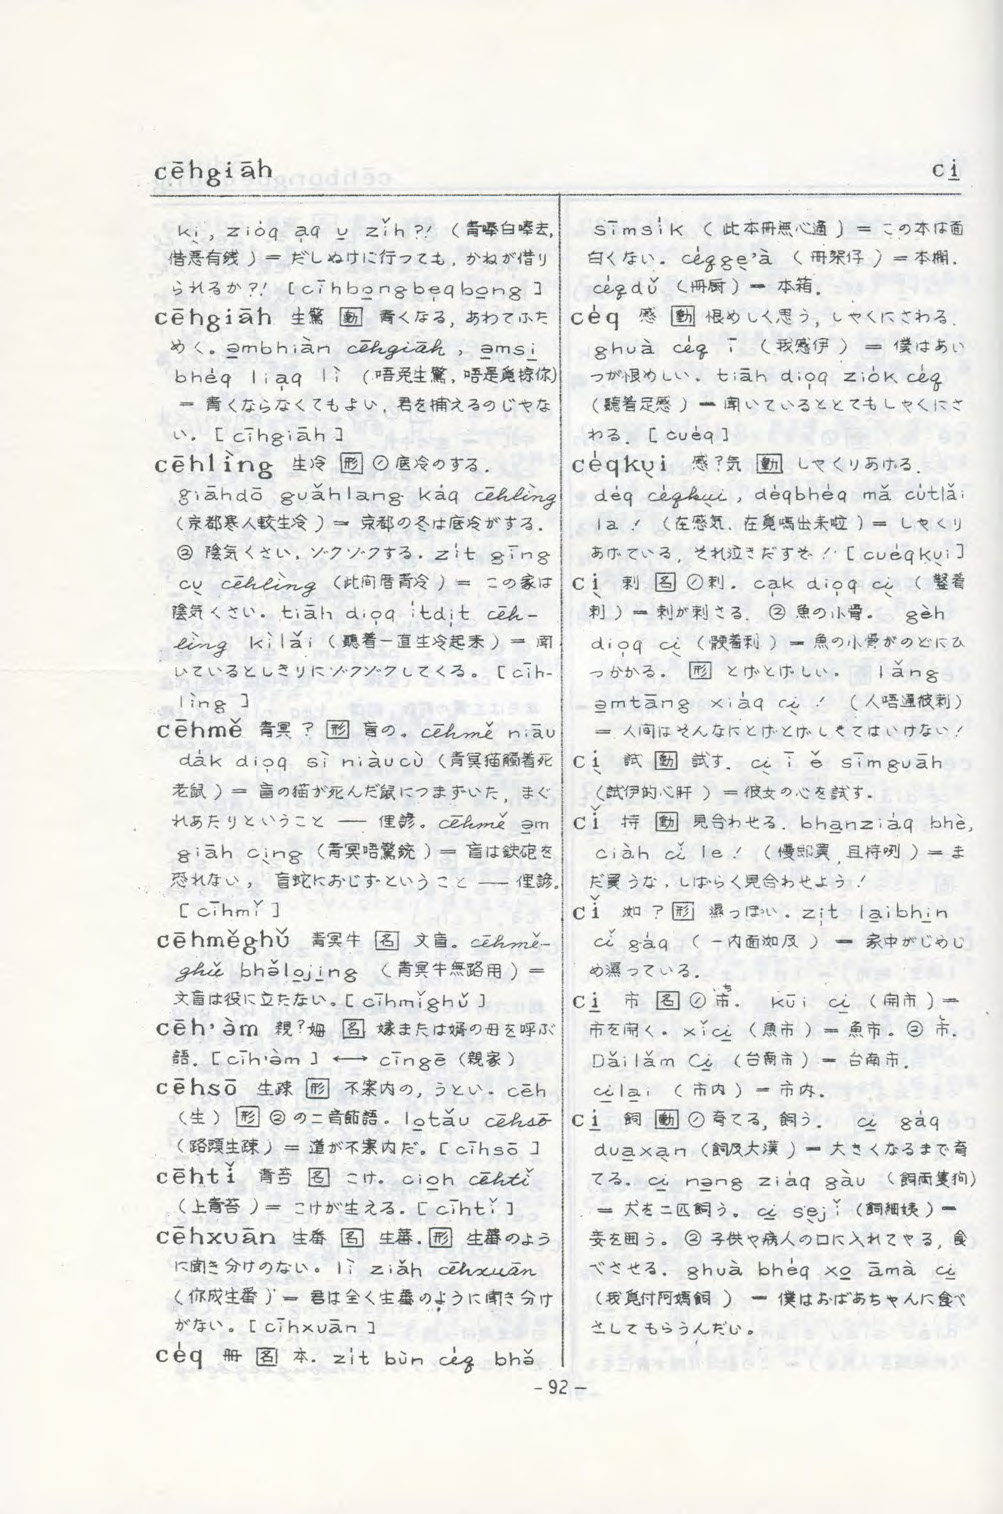 cēhgiāh
ci̱
ki̩, zióq a̩q u̱ zǐh?! (青嗙白嗙去,
借悪有銭) = だしぬけに行っても, かねが借り
られるか?! [cīhbo̱ngbe̩qbo̱ng]
cēhgiāh 生驚 [動] 青くなる, あわてふた
めく。 ə̱mbhiàn cēhgiāh, ə̱msi̱
bhéq lia̩q lì (唔免生驚, 唔是覓掠你)
= 青くならなくてもよい, 君を捕えるのじゃな
い。 [cīhgiāh]
cēhlìng 生冷 [形] ①底冷のする.
giāhdō guǎhlang káq cēhlìng
(京都寒人較生冷) = 京都の冬は底冷がする.
② 陰気くさい, ゾクゾクする. zi̍t gīng
cu̩ cēhlìng (此间厝青冷) = この家は
陰気くさい. tiāh dio̩q i̍tdi̩t cēh-
lìng kìlǎi (聽着一直生冷起来) = 聞
いているとしきりにゾクゾクしてくる。 [cīh-
lìng]
cēhmě 青冥? [形] 盲の. cēhmě niāu
dák dio̩q sì niàucù (青冥猫觸着死
老鼠) = 盲の猫が死んだ鼠につまずいた, まぐ
れあたりということ — 俚諺. cēhmě ə̱m
giāh ci̩ng (青冥唔驚銃) = 盲は鉄砲を
恐れない, 盲蛇におじずということ — 俚諺.
[cīhmǐ]
cēhměghǔ 青冥牛 [名] 文盲. cēhmě-
ghǔ bhǒlo̱ji̱ng (青冥牛無路用) =
文盲は役に立たない。[cīhmǐghǔ]
cēh'ḿ 親?姆 [名] 嫁または婿の母を呼ぶ
語. [cīh'ə̀m] ⟷ cīngē (親家)
cēhsō 生疎 [形] 不案内の, うとい. cēh
(生) [形] ② の二音節語. lo̱tǎu cēhsō
(路頭生疎) = 道が不案内だ。[cīhsō]
cēhtǐ 青苔 [名] こけ. cio̱h cēhtǐ
(上青苔) = こけが生える. [cīhtǐ]
cēhxuān 生番 [名] 生蕃. [形] 生蕃のよう
に聞き分けのない。 lì ziǎh cēhxuān
(你成生番) = 君は全く生蕃のように聞き分け
がない。[cīhxuān]
céq 冊 [名] 本. zi̍t bùn céq bhǒ
sīmsi̍k (此本冊無心適) = この本は面
白くない。 céqge̩'à (冊架仔) = 本棚.
céqdǔ (冊厨) = 本箱.
céq 感 [動] 恨めしく思う, しゃくにさわる.
ghuà céq ī (我感伊) = 僕はあい
つが恨めしい. tiāh dio̩q ziók céq
(聽着足感) = 聞いているととてもしゃくにさ
わる. [cuéq]
céqku̩i 感?気 [動] しゃくりあげる.
déq céqku̩i, déqbhéq mǎ cútlǎi
la! (在感気, 在覓嗎出来啦) = しゃくり
あげている, それ泣きだすぞ! [cuéqku̩i]
ci̩ 刺 [名] ①刺. ca̩k dio̩q ci̩ (鑿着
刺) = 刺が刺さる. ② 魚の小骨. gèh
dio̩q ci̩ (骾着刺) = 魚の小骨がのどにひ
っかかる. [形] とげとげしい. lǎng
ə̱mtāng xiáq ci̩! (人唔通彼刺)
= 人间はそんなにとげとげしくてはいけない!
ci̩ 試 [動] 試す. ci̩ ī ě sīmguāh
(試伊的心肝) = 彼女の心を試す.
cǐ 持 [動] 見合わせる. bha̱nziáq bhè,
ciàh cǐ le! (慢即買, 且持咧) = ま
だ買うな, しばらく見合わせよう!
cǐ 洳? [形] 濕っぽい. zi̩t la̱ibhi̱n
cǐ gáq (一内面洳及) = 家中がじめじ
め濕っている.
ci̱ 市 [名] ①市(いち). kūi ci̱ (開市) =
市を開く. xǐci̱ (魚市) = 魚市. ② 市(し).
Dǎilǎm Ci̱ (台南市) = 台南市.
ci̱la̱i (市内) = 市内.
ci̱ 飼 [動] ①育てる, 飼う. ci̱ gáq
dua̱xa̩n (飼及大漢) = 大きくなるまで育
てる. ci̱ nə̱ng ziáq gàu (飼両隻狗)
= 犬を二匹飼う. ci̱ se̩jǐ (飼細姨) =
妾を囲う. ② 子供や病人の口に入れてやる, 食
べさせる. ghuà bhéq xo̱ āmà ci̱
(我覓付阿媽飼) = 僕はおばあちゃんに食べ
さしてもらうんだい。
- 92 -